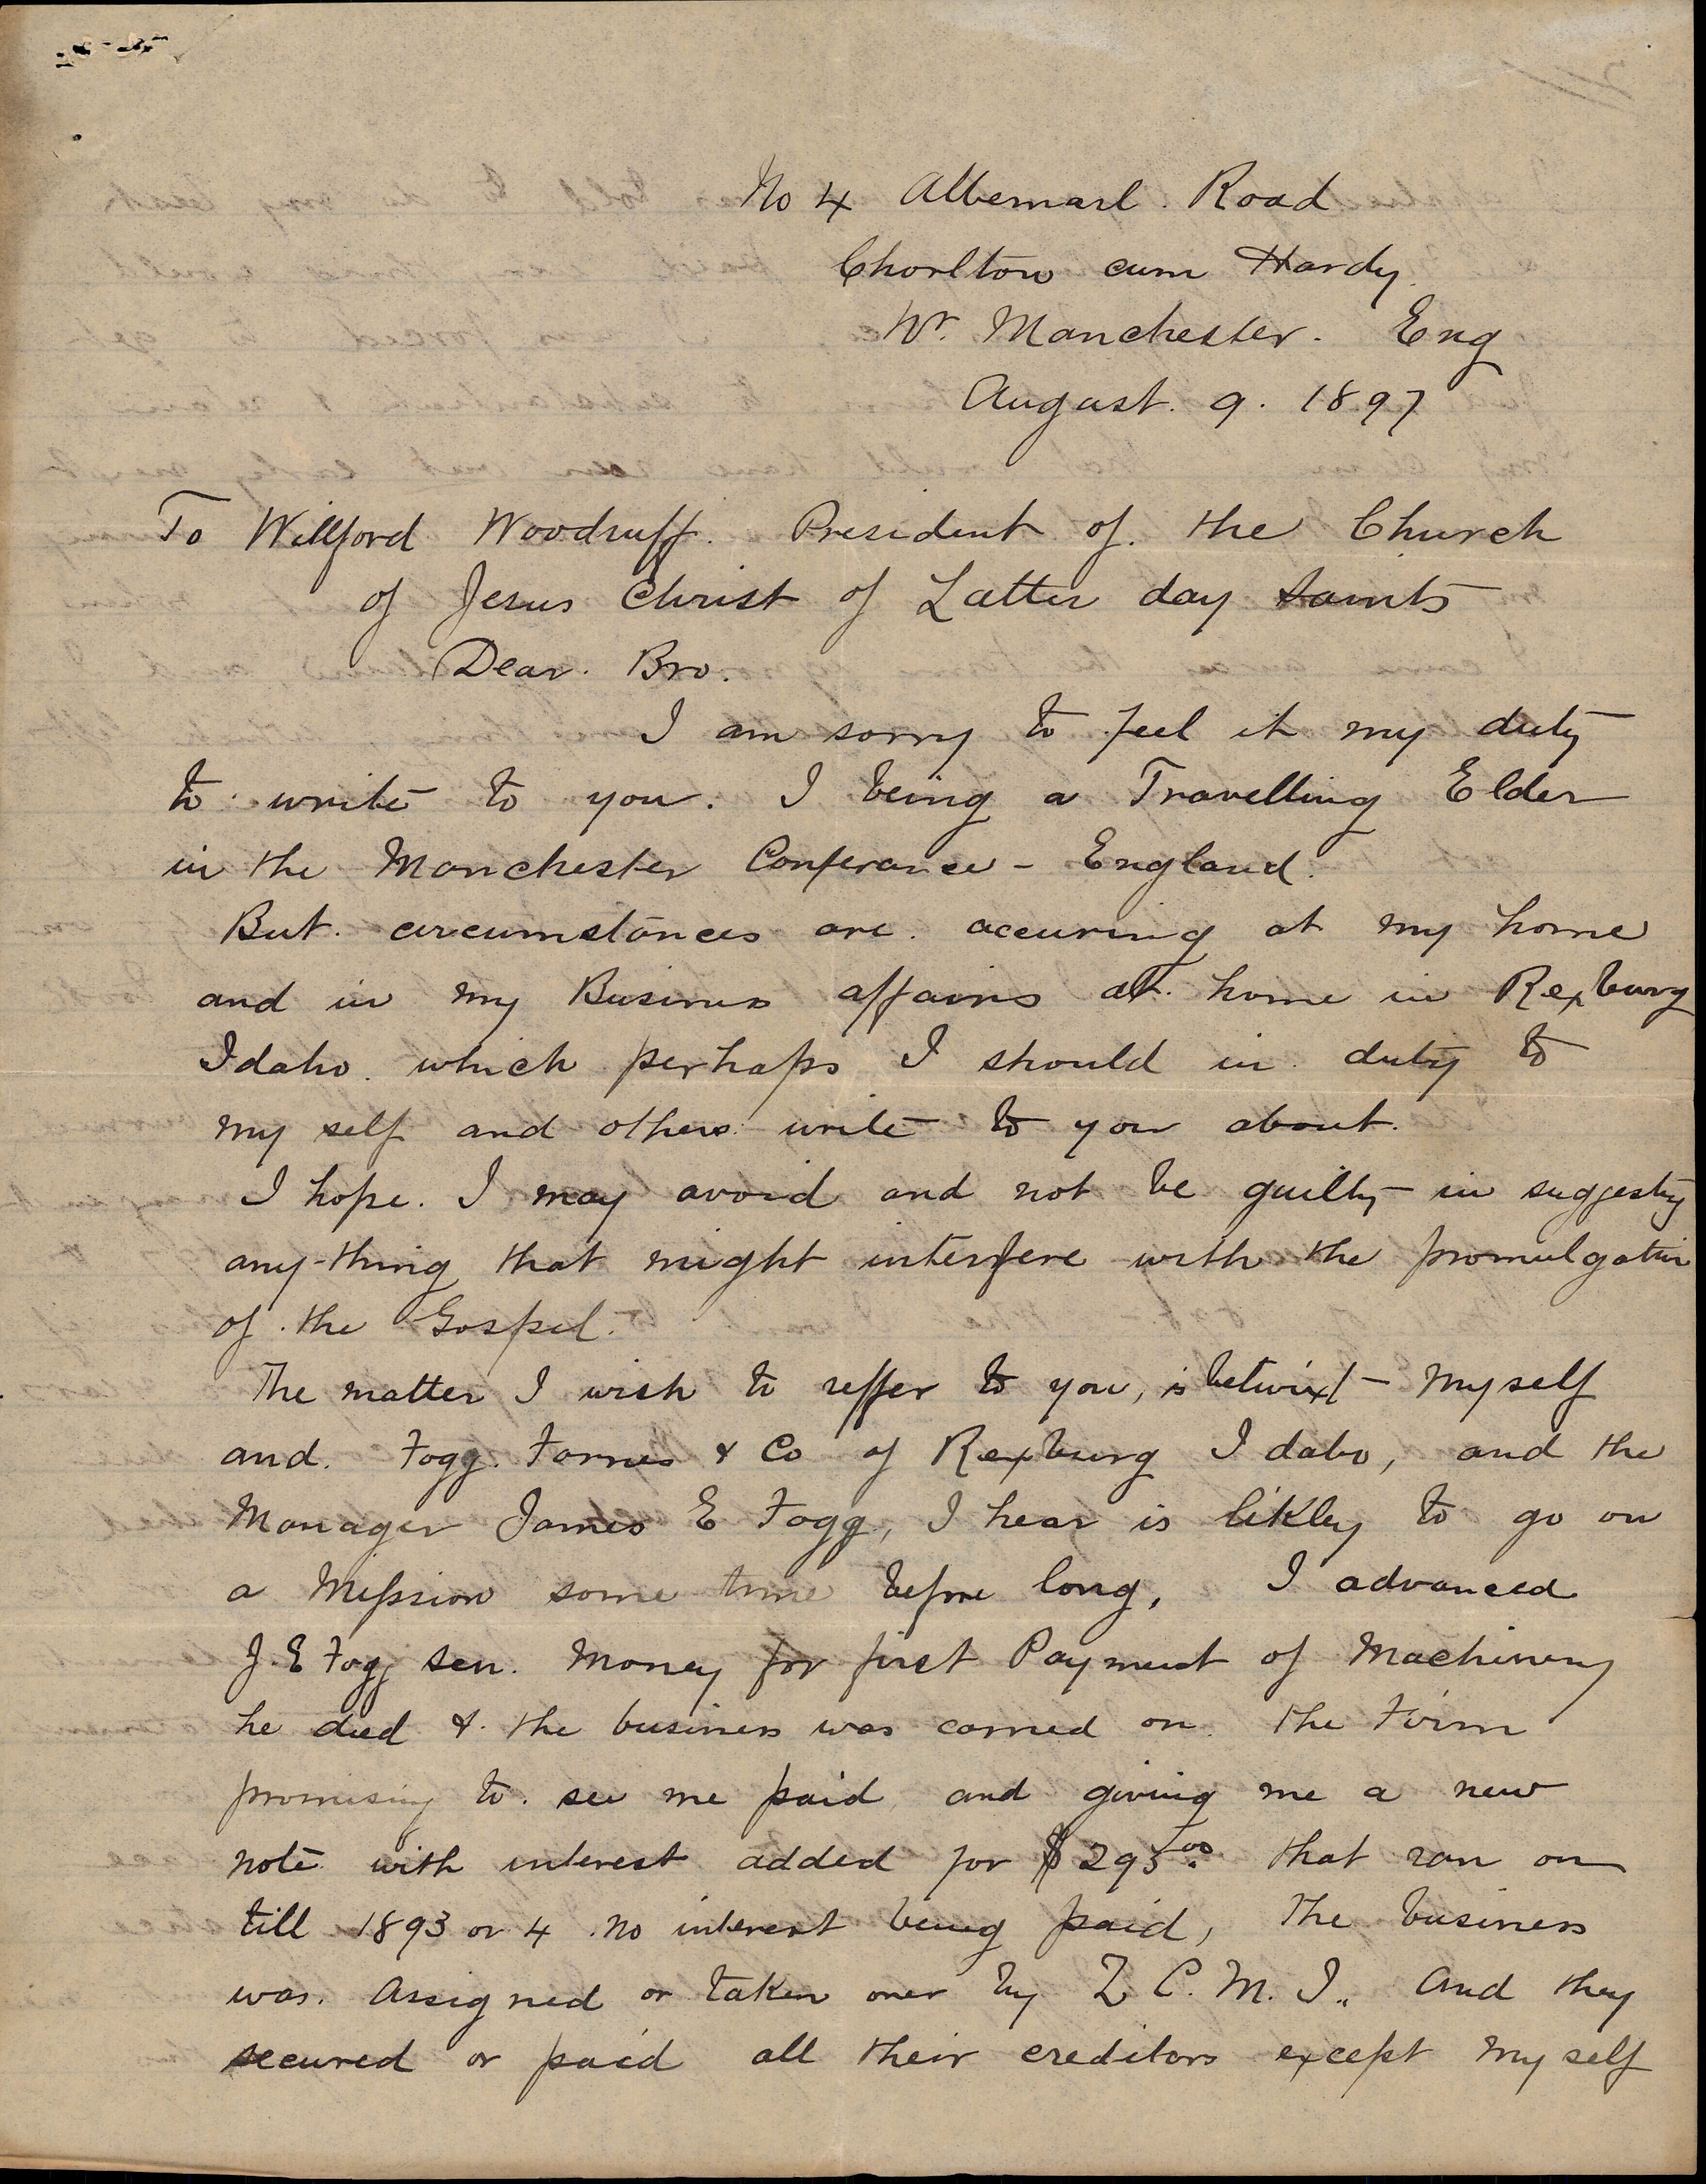 No 4 Albemarl. Road
Chorlton cum Hardy.
Nr. Manchester. Eng
August. 9. 1897
To Willford Woodruff. President of. the Church
of Jesus Christ of Latter day Saints
Dear. Bro.
I am sorry to feel it my duty
to write to you. I being a Travelling Elder
in the Manchester Conferance - England.
But. circumstances are. accuring at my home
and in my Business affairs at. home in Rexburg
Idaho. which perhaps I should in duty to
my self and others write to you about.
I hope. I may avoid and not be guilty in suggesting
any-thing that might interfere with the promulgation
of the Gospel.
The matter I wish to reffer to you, is betwixt - Myself
and. Fogg. Farnes & Co of Rexburg Idaho, and the
Manager James E Fogg, I hear is likley to go on
a Mission some time before long, I advanced
J. E Fogg Sen. Money for first Payment of Machinery
he died &. the business was carried on. the Firm
promising to. see me paid and giving me a new
note with interest added for $295.00 that ran on
till 1893 or 4 no interest being paid, The business
was. Assigned or taken over by Z C. M. I.. And they
secured or paid all their creditors except My self